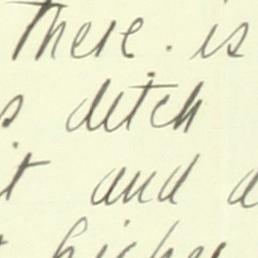 There. is
s ditch
t and a
higher